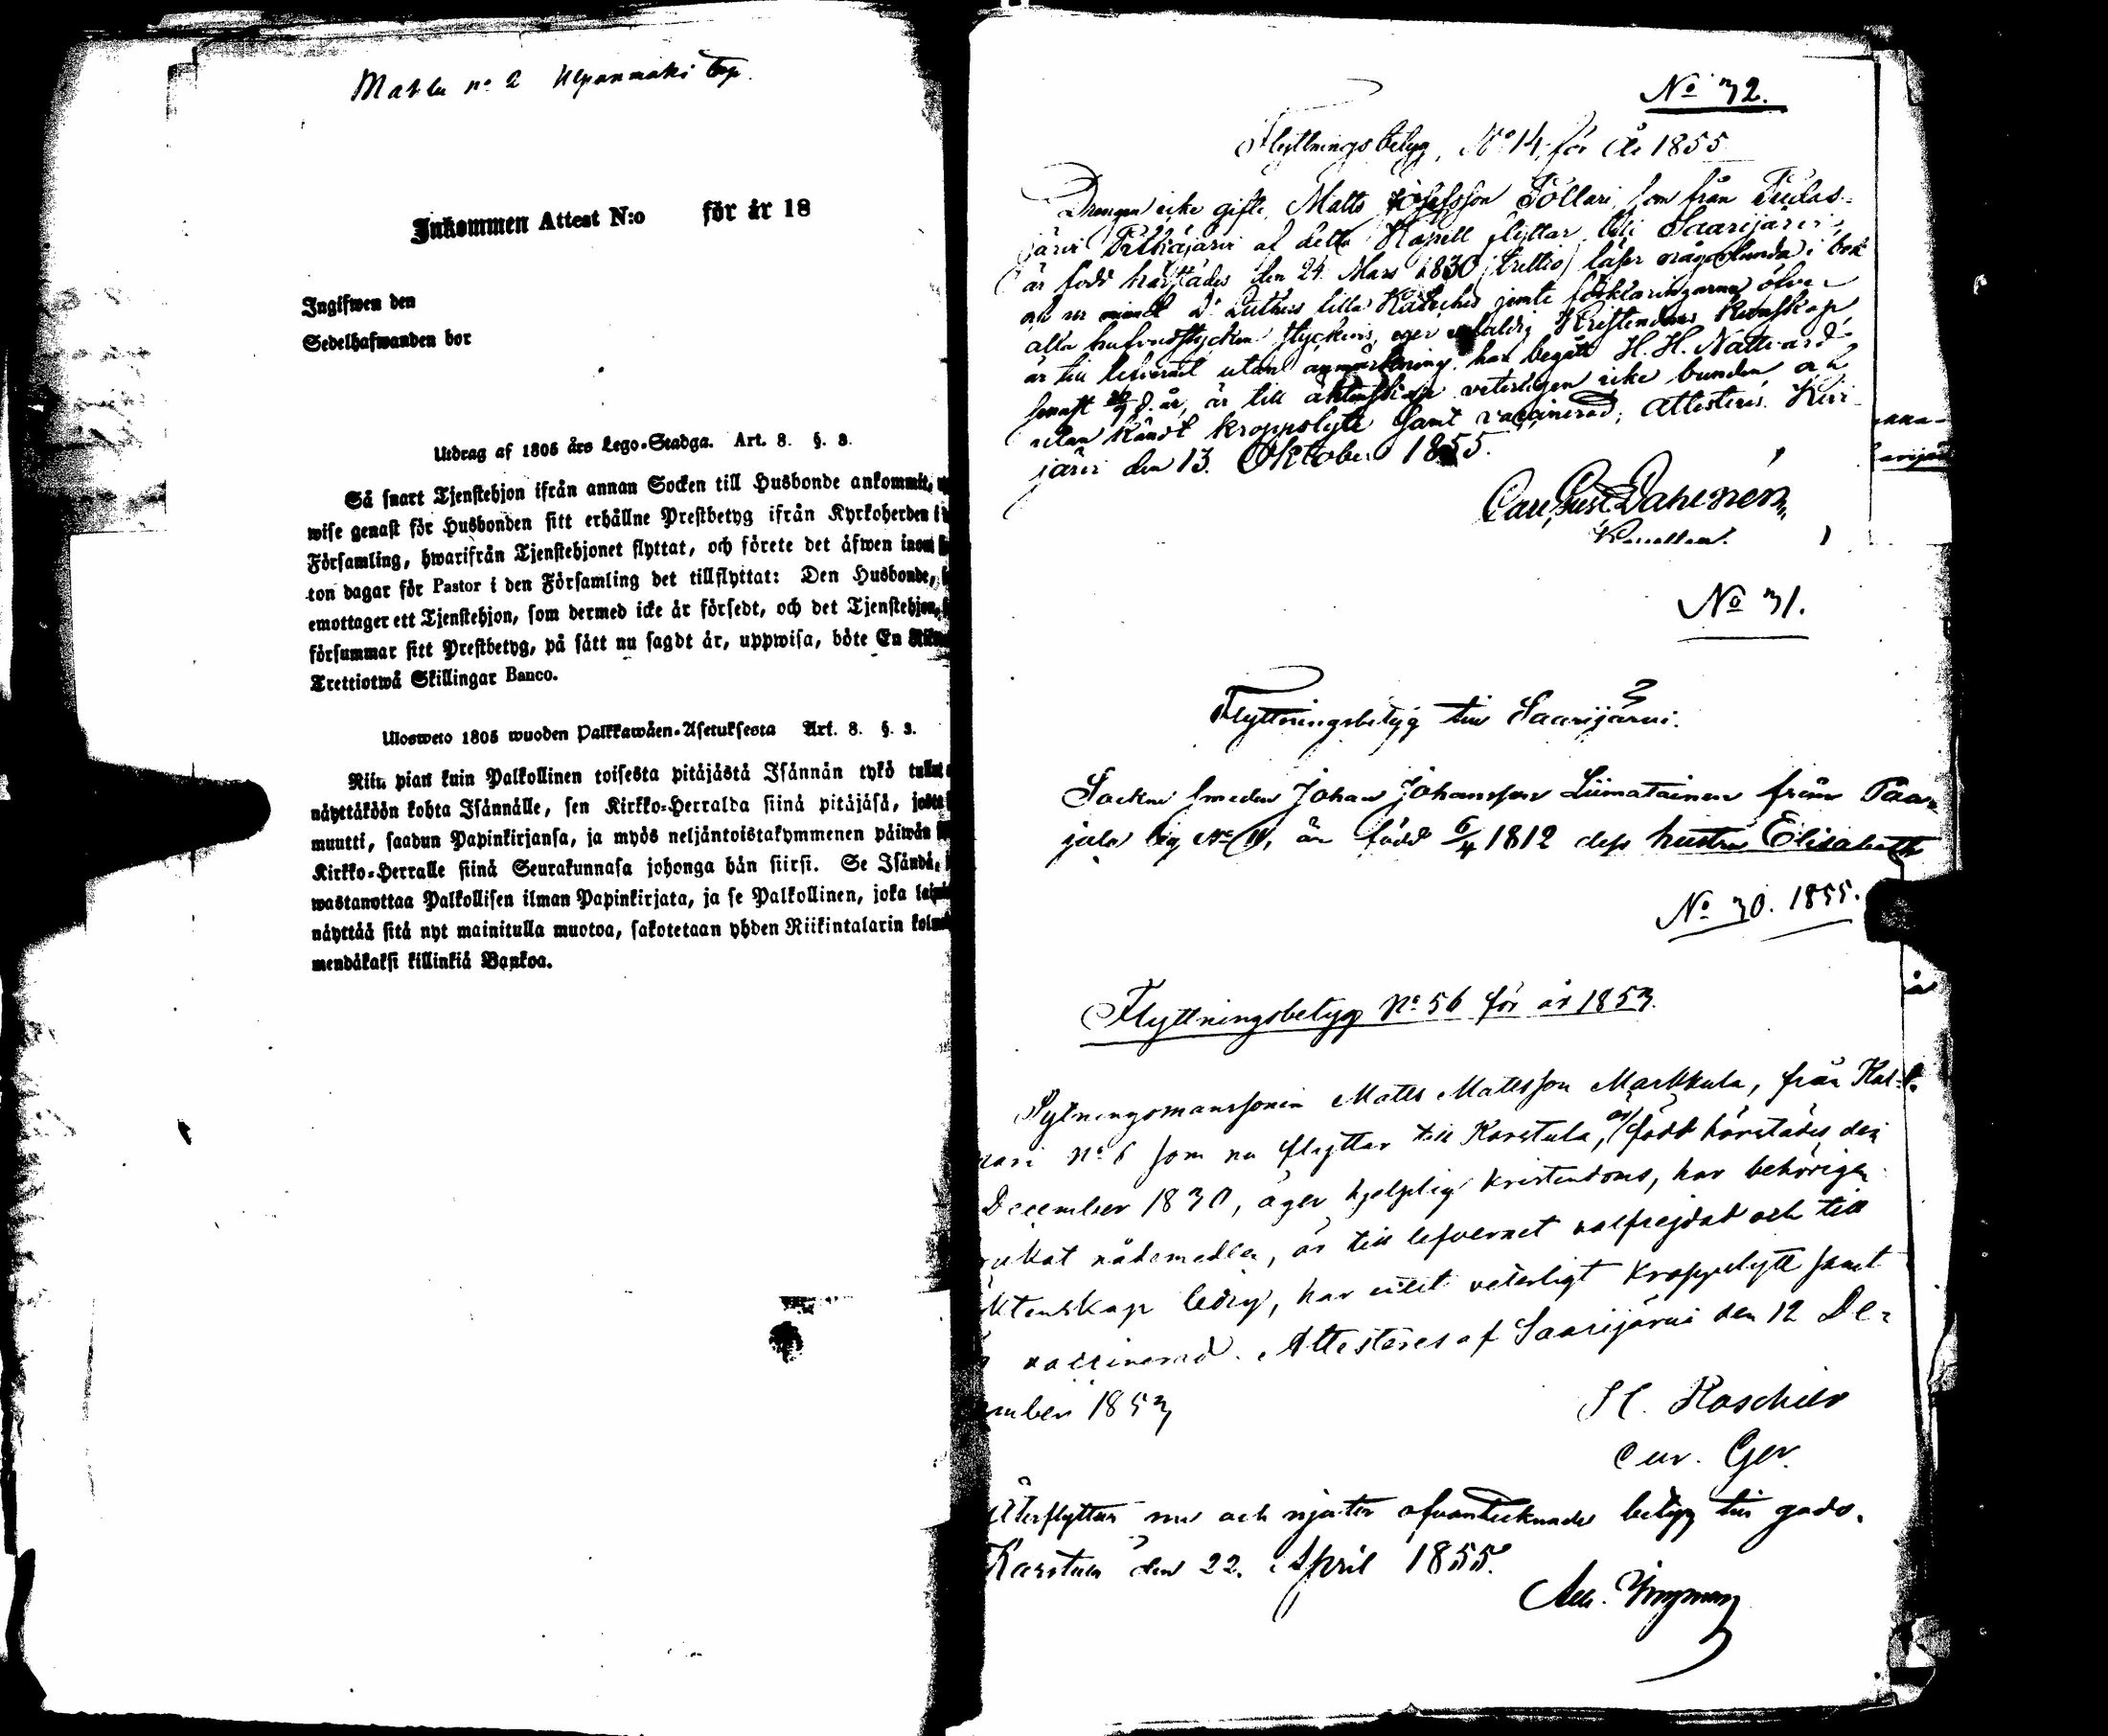 Mahlu no 2
Inkommen Attest N:o för år 18
Ingifwen den
Sedelhafwanden bor
Utdrag af 1805 års Lego-Stadga. Art. 8. §. 3.
Så snart Tjenstehjon ifrån annan Socken till Husbonde ankommit,
wise genast för Husbonden sitt erhållne Prestbetyg ifrån Kyrkoherden i
Församling, hwarifrån Tjenstehjonet flyttat, och förete det äfwen inom
ton dagar för Pastor i den Församling det tillflyttat: Den Husbonde,
emottager ett Tjenstehjon, som dermed icke är försedt, och det Tjenstehjon,
försummar sitt Prestbetyg, på sätt nu sagdt är, uppwisa, böte En
Trettiotwå Skillingar Banco.
Ulosweto 1805 wuoden Palkkawäen-Asetuksesta Art. 8. §. 3.
Niin pian kuin Palkollinen toisesta pitäjästä Isännän tykö tullut
näyttäköön kohta Isännälle, sen Kirkko-Herralda siinä pitäjäsä, josta
muutti, saadun Papinkirjansa, ja myös neljäntoistakymmenen päiwän
Kirkko-Herralle siinä Seurakunnasa johonga hän siirsi. Se Isändä,
wastanottaa Palkollisen ilman Papinkirjata, ja se Palkollinen, joka
näyttää sitä nyt mainitulla muotoa, sakotetaan yhden Riikintalarin
mendäkaksi killinkiä Bankoa.
No 32.
Flyttningsbetyg, No 14 för År 1855
Drengen icke gifte, Matts Josefsson Töllari, som från
järvi af detta Kapell flyttar till Saarijärvi,
är född härstädes den 24 Mars 1830 (trettio) läser någorlunda i bok
och ur minnet Dr Luthers lilla Kateches jemte förklaringarna öfver
alla hufvudstycken styckevis, eger enfaldig Kristendoms Kunskap,
är till lefvernet utan anmärkning, har begått H. H. Nattvard
senast d. år, är till äktenskap veterligen icke bunden och
utan kändt kroppslyte samt vaccinerad; attesteras. Kivi-
järvi den 13. Oktober 1855.
Carl Gust.
Kapellan.
No 31.
Flyttningsbetyg till Saarijärvi.
Socknesmeden Johan Johansson Liimatainen från Paa-
jala by No 11, är född 6/4 1812 dess hustru Elisabeth
No 30. 1855.
Flyttningsbetyg No 56 för år 1853.
Sytningsmanssonen Matts Mattsson Markkula, från Kal-
mari No 6 som nu flyttar till Karstula, är född härstädes den
December 1830, äger hjelplig kristendoms, har behörigen
rukat nådemedlen, är till lefvernet välfrejdad och till
ktenskap ledig, har intet veterligt kroppslytt samt
vaccinerad. Attesteras af Saarijärvi den 12 De-
ember 1853
H. Roschier
Cur. Ger.
Återflyttar nu och njuter ofvantecknade betyg till godo.
Karstula den 22. April 1855.